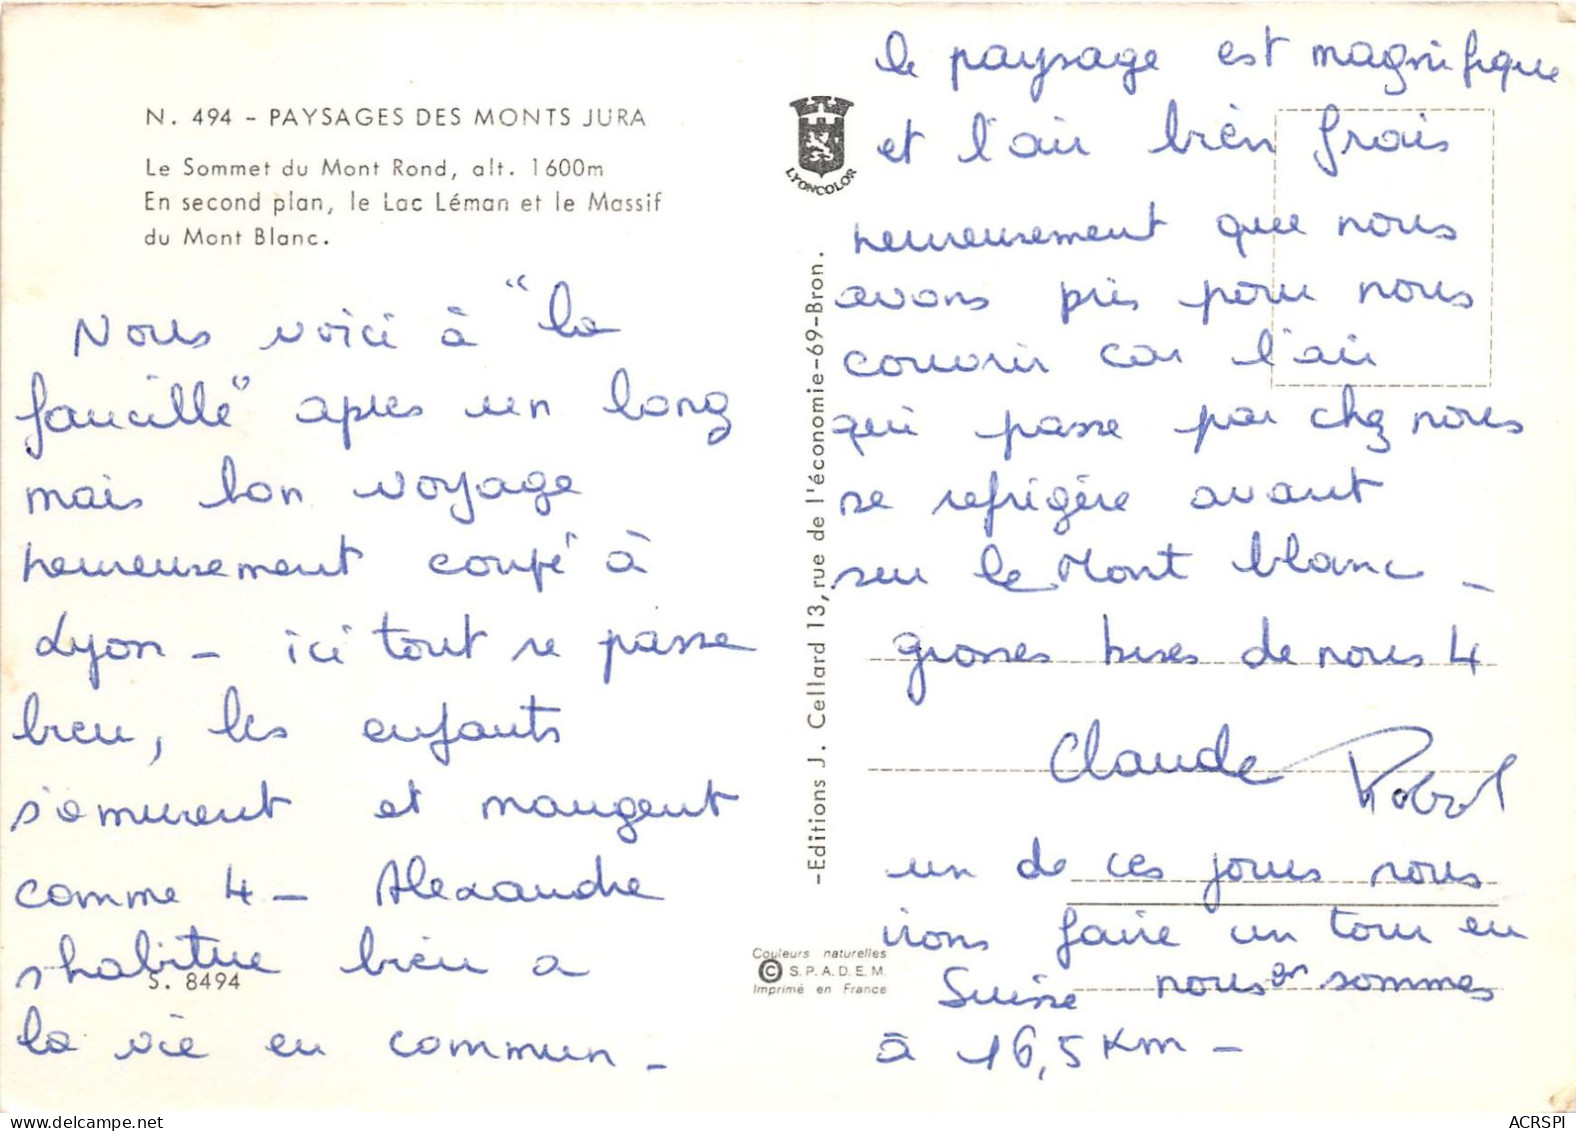 N. 494 - PAYSAGES DES MONTS JURA
Le Sommet du Mont Rond, alt. 1600m
En second plan, le Lac Léman et le Massif
du Mont Blanc.
Nous voici à "la
faucille" après un long
mais bon voyage
heureusement coupé à
Lyon - ici tout se passe
bien, les enfants
s'amusent et mangent
comme 4 - Alexandre
s'habitue bien a
S. 8494
la vie en commun -
LYONCOLOR
-Editions J. Cellard 13, rue de l'économie-69-Bron.
Couleurs naturelles
© S.P.A.D.E.M.
Imprimé en France
le paysage est magnifique
et l'air bien frais
heureusement que nous
avons pris pour nous
couvrir car l'air
qui passe par chez nous
se refrigère avant
sur le Mont blanc -
grosses bises de nous 4
Claude Robert
un de ces jours nous
irons faire un tour en
Suisse nous en sommes
à 16,5 Km -
ACRSPI